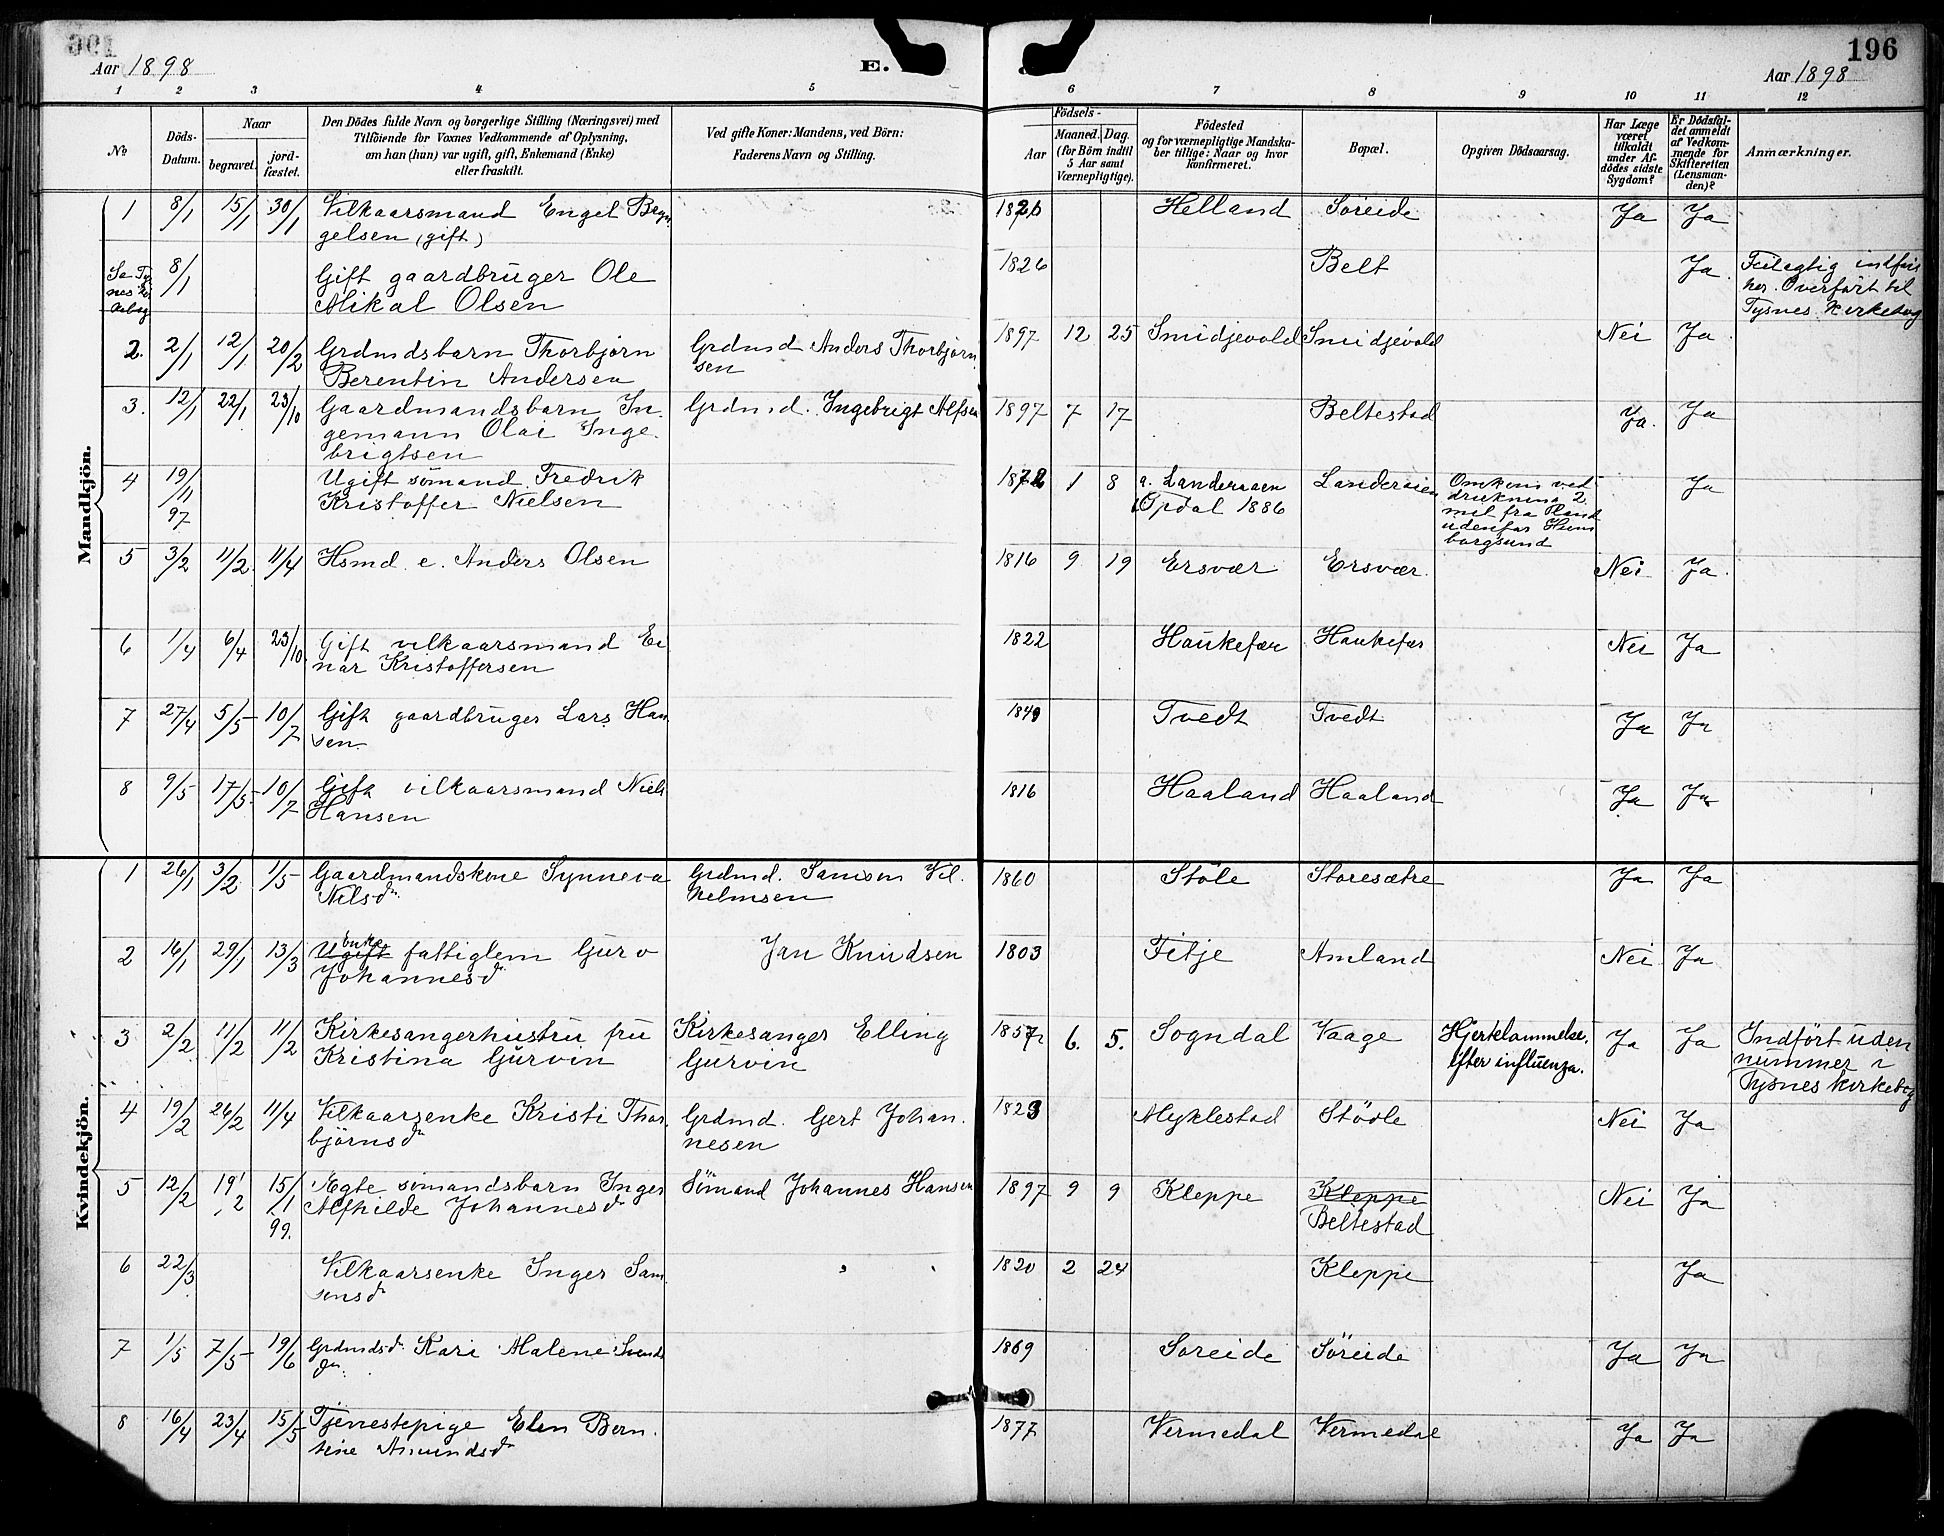 Aar 1898
E.
196
Aar 1898
1 2 3 4 5 6 7 8 9 10 11 12
No
Döds-
Datum.
Naar
begravet.
jord-
fæstet.
Den Dödes fulde Navn og borgerlige Stilling (Næringsvei) med
Tilföiende for Voxnes Vedkommende af Oplysning,
om han (hun) var ugift, gift, Enkemand (Enke)
eller fraskilt.
Ved gifte Koner: Mandens, ved Börn:
Faderens Navn og Stilling.
Födsels-
Aar
Maaned. Dag.
(for Börn indtil
5 Aar samt
Værnepligtige).
Födested
og for værnepligtige Mandska-
ber tillige: Naar og hvor
konfirmeret.
Bopæl.
Opgiven Dödsaarsag.
Har Læge
været
tilkaldt
under Af-
dödes sidste
Sygdom?
Er Dödsfal-
det anmeldt
af Vedkom-
mende for
Skifteretten
(Lensman-
den)?
Anmærkninger.
Mandkjön.
1 8/1 15/1 30/1 Vilkaarsmand Engel
gelsen (gift) Helland Söreide Ja Ja
8/1 Gift gaardbruger Ole
Mikal Olsen 1826 Belt Ja
her. Overført til
Tysnes Kirkebog
2. 2/1 12/1 20/2 Grdmdsbarn Thorbjørn
Berentin Andersen Grdmd Anders Thorbjørn
sen 1897 12 25 Smidjevold Smidjevold Nei Ja
3. 12/1 22/1 23/10 Gaardmandsbarn In-
gemann Olai Inge-
brigtsen Grdmd. Ingebrigt Alfsen 1897 7 17 Beltestad Ja. Ja
4 19/11 97 Ugift sømand Fredrik
Kristoffer Nielsen 1872 1 8 Landeraaen
Opdal 1886 Omkom ved
drukning 2
mil fra
udenfor
borgsund Ja
5 3/2 11/2 11/4 Hsmd. e. Anders Olsen 1816 9 19 Ersvær Ersvær. Nei Ja.
6 1/4 6/4 23/10 Gift vilkaarsmand Ei
nar Kristoffersen 1822 Haukefær Haukefær Nei Ja
7 27/4 5/5 10/7 Gift gaardbruger Lars Han
sen. 1849 Tvedt Tvedt Ja Ja
8 9/5 17/5 10/7 Gift vilkaarsmand Niels
Hansen 1816 Haaland Haaland Ja Ja
Kvindekjön.
1 26/1 3/2 1/5 Gaardmandskone Synneva
Nilsdr. Grdmd. Samson Vil-
helmsen 1860 Støle Storesætre Ja Ja
2 16/1 29/1 13/3 Ugift enke fattiglem Guro
Johannesdr Jan Knudsen 1803 Fitje Amland Nei Ja
3 2/2 11/2 11/2 Kirkesangerhustru fru
Kristina Gurvin Kirkesanger Elling
Gurvin 1857 6. 5. Sogndal Vaage Hjertelammelse.
efter influenza. Ja Ja Indført uden
nummer i
Tysnes kirkebog
4 19/2 26/2 11/4 Vilkaarsenke Kristi Thor
björnsdr Grdmd. Gert Johan-
nesen 1823 Myklestad Stödle Nei Ja
5 12/2 19/2 15/1 99. Ægte sømandsbarn Inger
Alfhilde Johannesdr Sömand Johannes Hansen 1897 9 9 Kleppe Kleppe
Beltestad Nei Ja
6 22/3 Vilkaarsenke Inger Sam
sonsdr 1820 2 24 Kleppe Ja
7 1/5 7/5 19/6 Grdmdsdr Kari Malene Svends
dr. 1869 Søreide Söreide Ja Ja
8 16/4 23/4 15/5 Tjenestepige Elen Bern-
tine Amundsdr 1877 Vermedal Vermedal Ja Ja